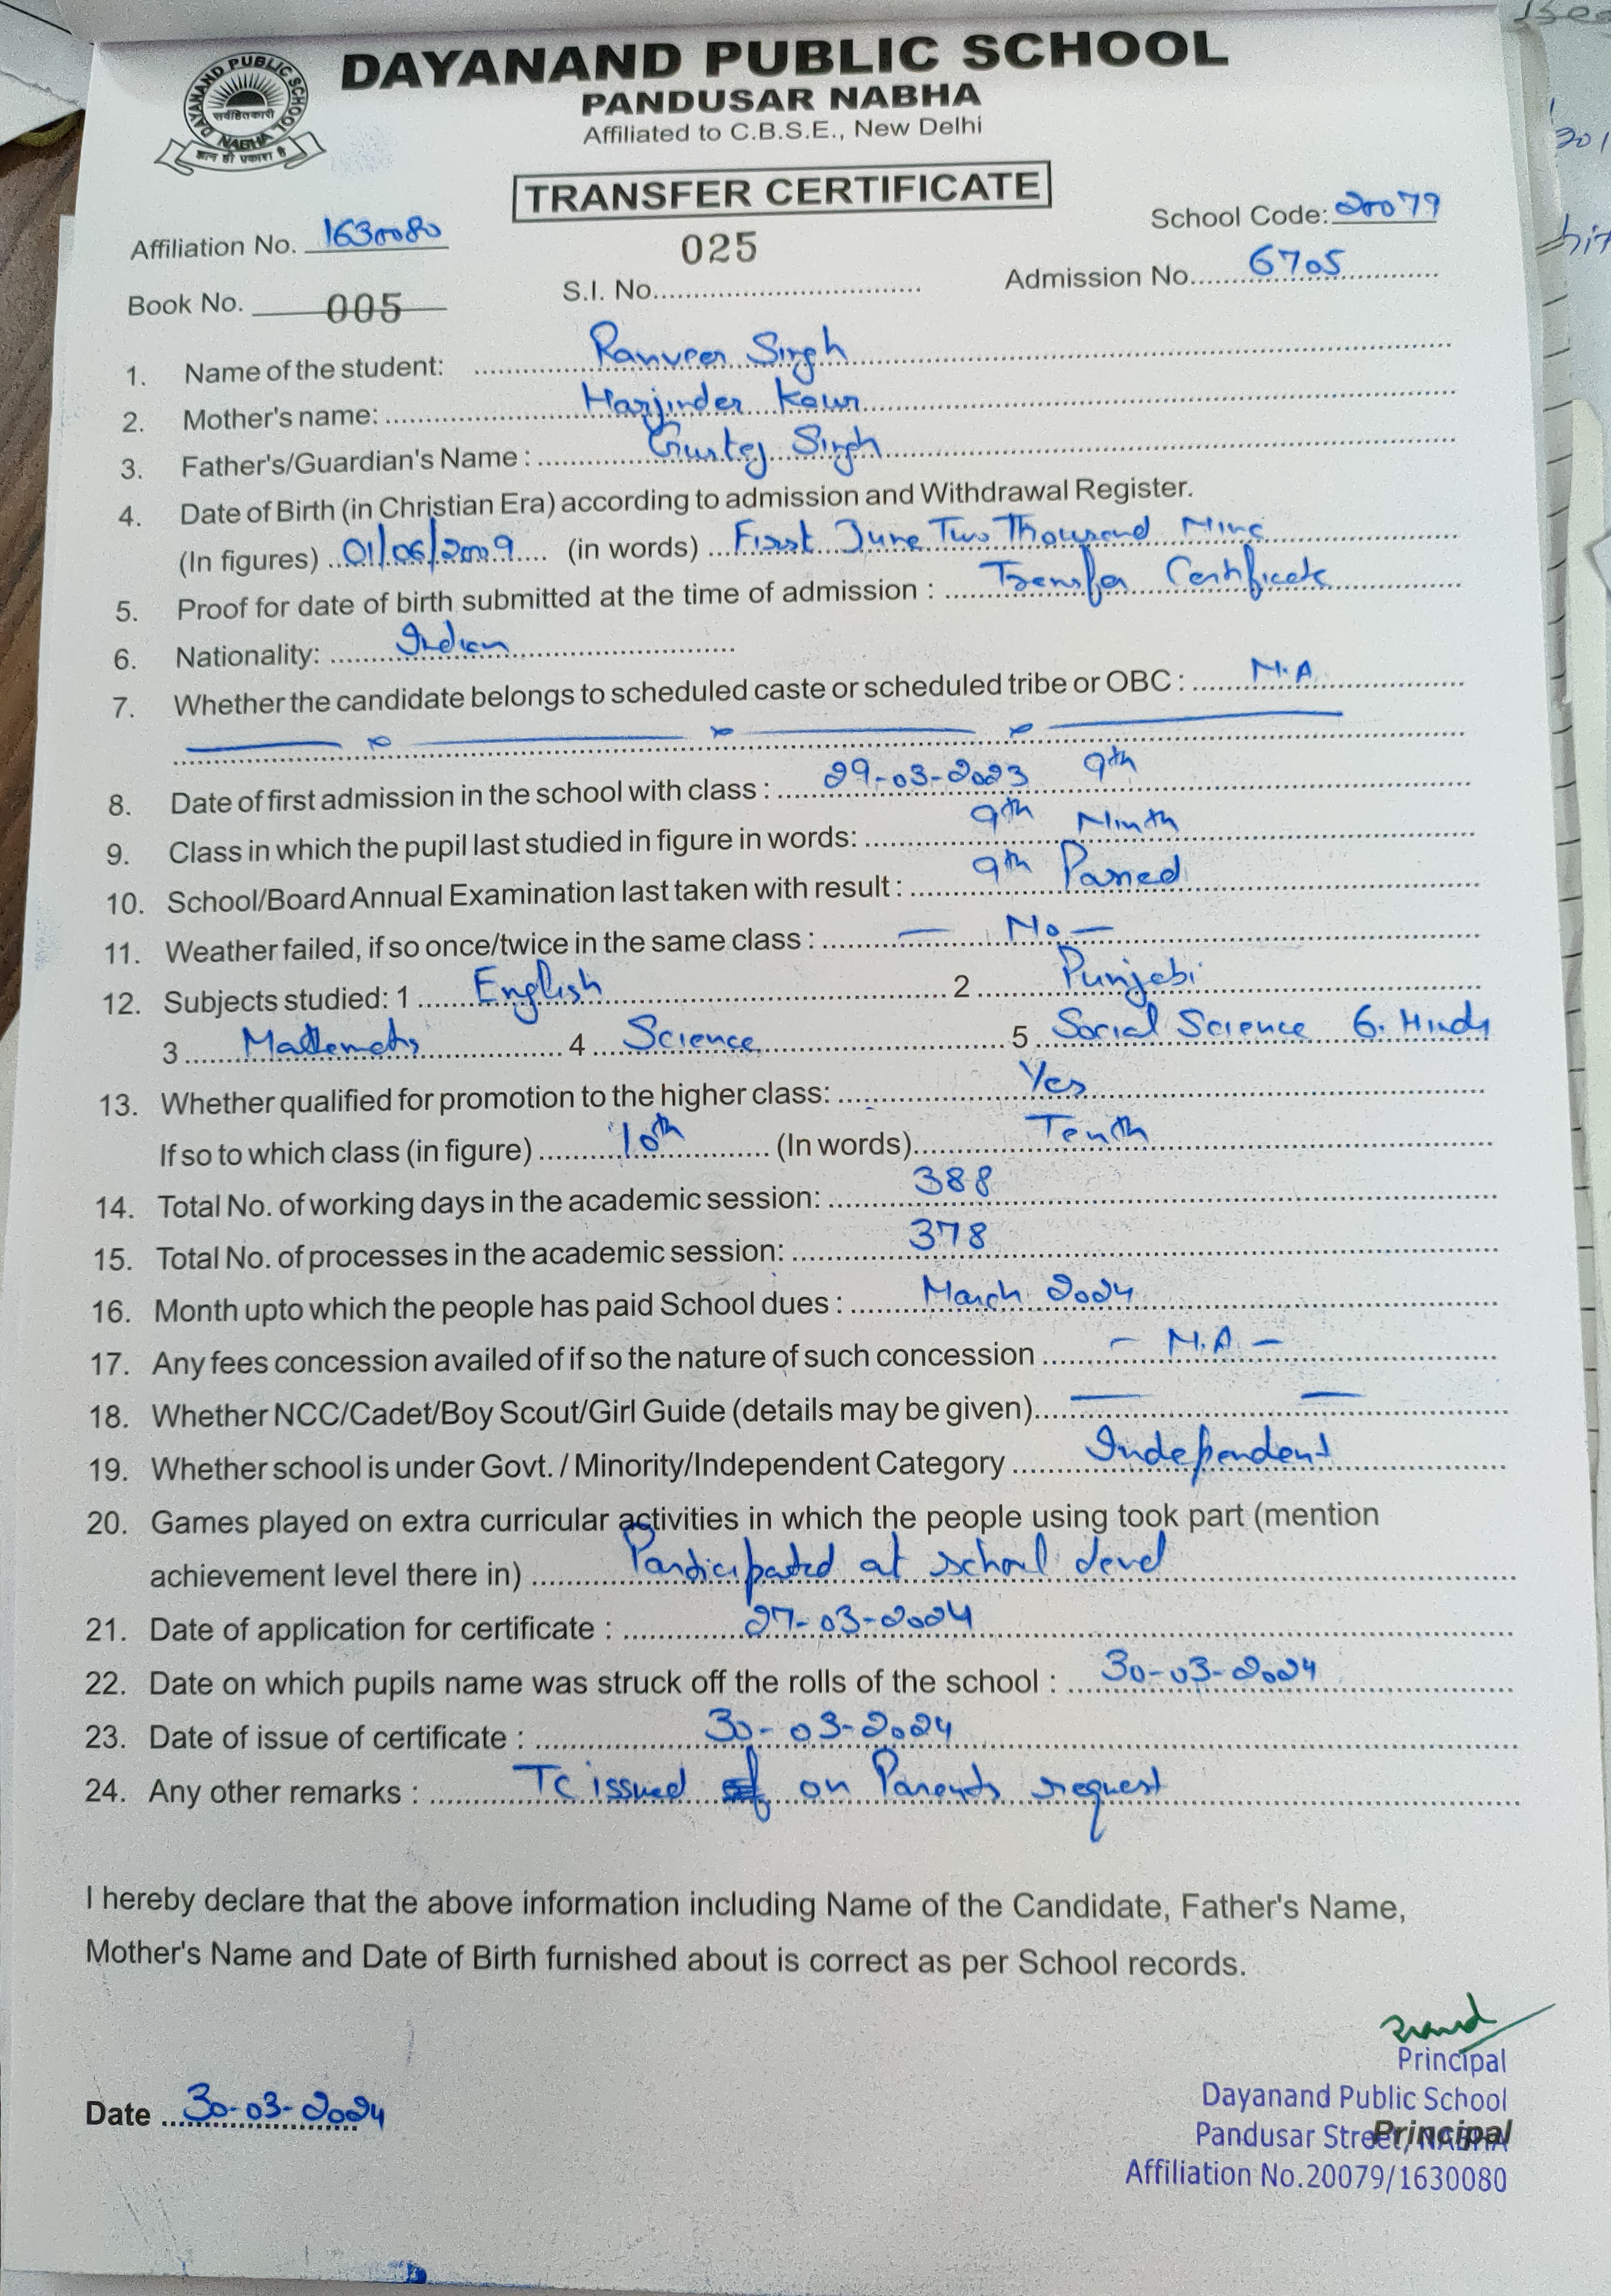 DAYANAND PUBLIC SCHOOL
PANDUSAR NABHA
Affiliated to C.B.S.E., New Delhi
DAYANAND PUBLIC SCHOOL
सर्वहितकारी
NABHA
ज्ञान ही प्रकाश है
TRANSFER CERTIFICATE
Affiliation No. 1630080 School Code: 20079
025
Book No. 005 S.I. No. Admission No. 6705
1. Name of the student: Ranveer Singh
2. Mother's name: Harjinder Kaur
3. Father's/Guardian's Name : Gurtej Singh
4. Date of Birth (in Christian Era) according to admission and Withdrawal Register.
(In figures) 01/06/2009 (in words) First June Two Thousand Nine
5. Proof for date of birth submitted at the time of admission : Transfer Certificate
6. Nationality: Indian
7. Whether the candidate belongs to scheduled caste or scheduled tribe or OBC : N.A
8. Date of first admission in the school with class : 29-03-2023 9th
9. Class in which the pupil last studied in figure in words: 9th Ninth
10. School/Board Annual Examination last taken with result : 9th Passed
11. Weather failed, if so once/twice in the same class : — No —
12. Subjects studied: 1 English 2 Punjabi
3 Mathematics 4 Science 5 Social Science 6. Hindi
13. Whether qualified for promotion to the higher class: Yes
If so to which class (in figure) 10th (In words) Tenth
14. Total No. of working days in the academic session: 388
15. Total No. of processes in the academic session: 378
16. Month upto which the people has paid School dues : March 2024
17. Any fees concession availed of if so the nature of such concession — N.A —
18. Whether NCC/Cadet/Boy Scout/Girl Guide (details may be given) — —
19. Whether school is under Govt. / Minority/Independent Category Independent
20. Games played on extra curricular activities in which the people using took part (mention
achievement level there in) Participated at school level
21. Date of application for certificate : 27-03-2024
22. Date on which pupils name was struck off the rolls of the school : 30-03-2024
23. Date of issue of certificate : 30-03-2024
24. Any other remarks : TC issued on Parents request
I hereby declare that the above information including Name of the Candidate, Father's Name,
Mother's Name and Date of Birth furnished about is correct as per School records.
Principal
Dayanand Public School
Date 30-03-2024
Pandusar Street, NABHA
Principal
Affiliation No.20079/1630080